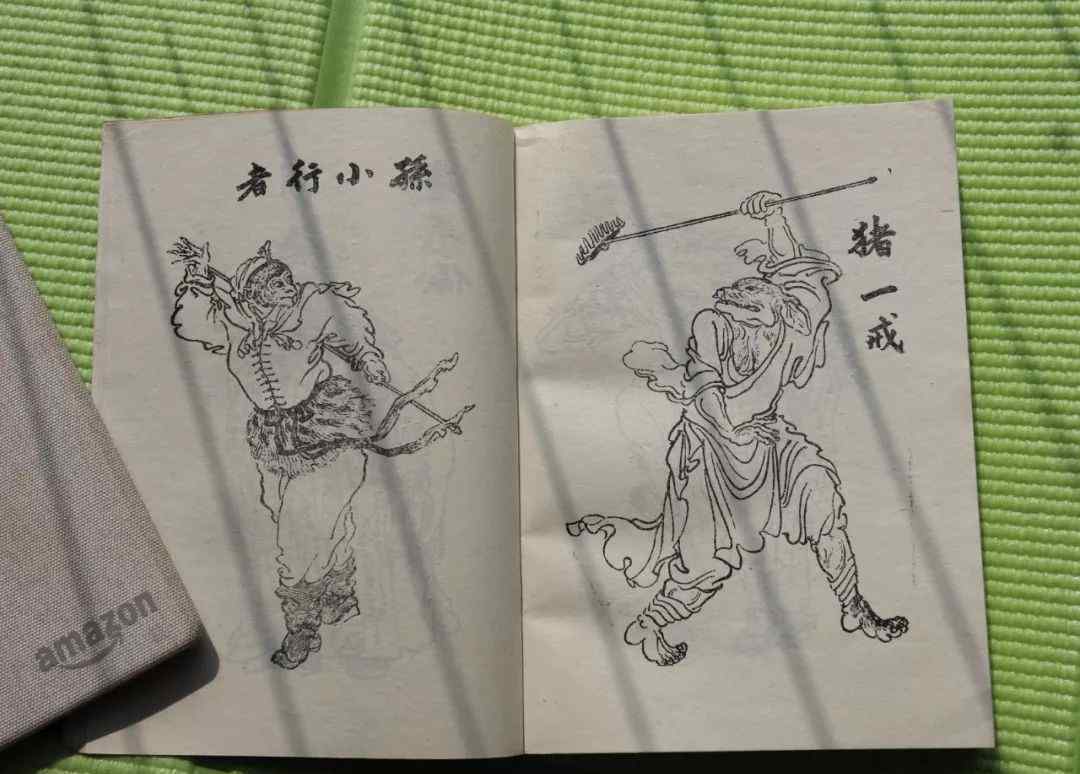 孫小行者
猪一戒
amazon